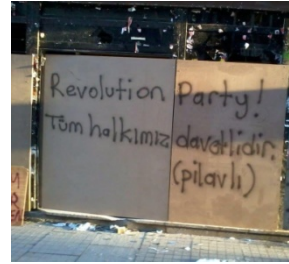 Revolution Party!
Tüm halkımız davetlidir.
(pilavlı)